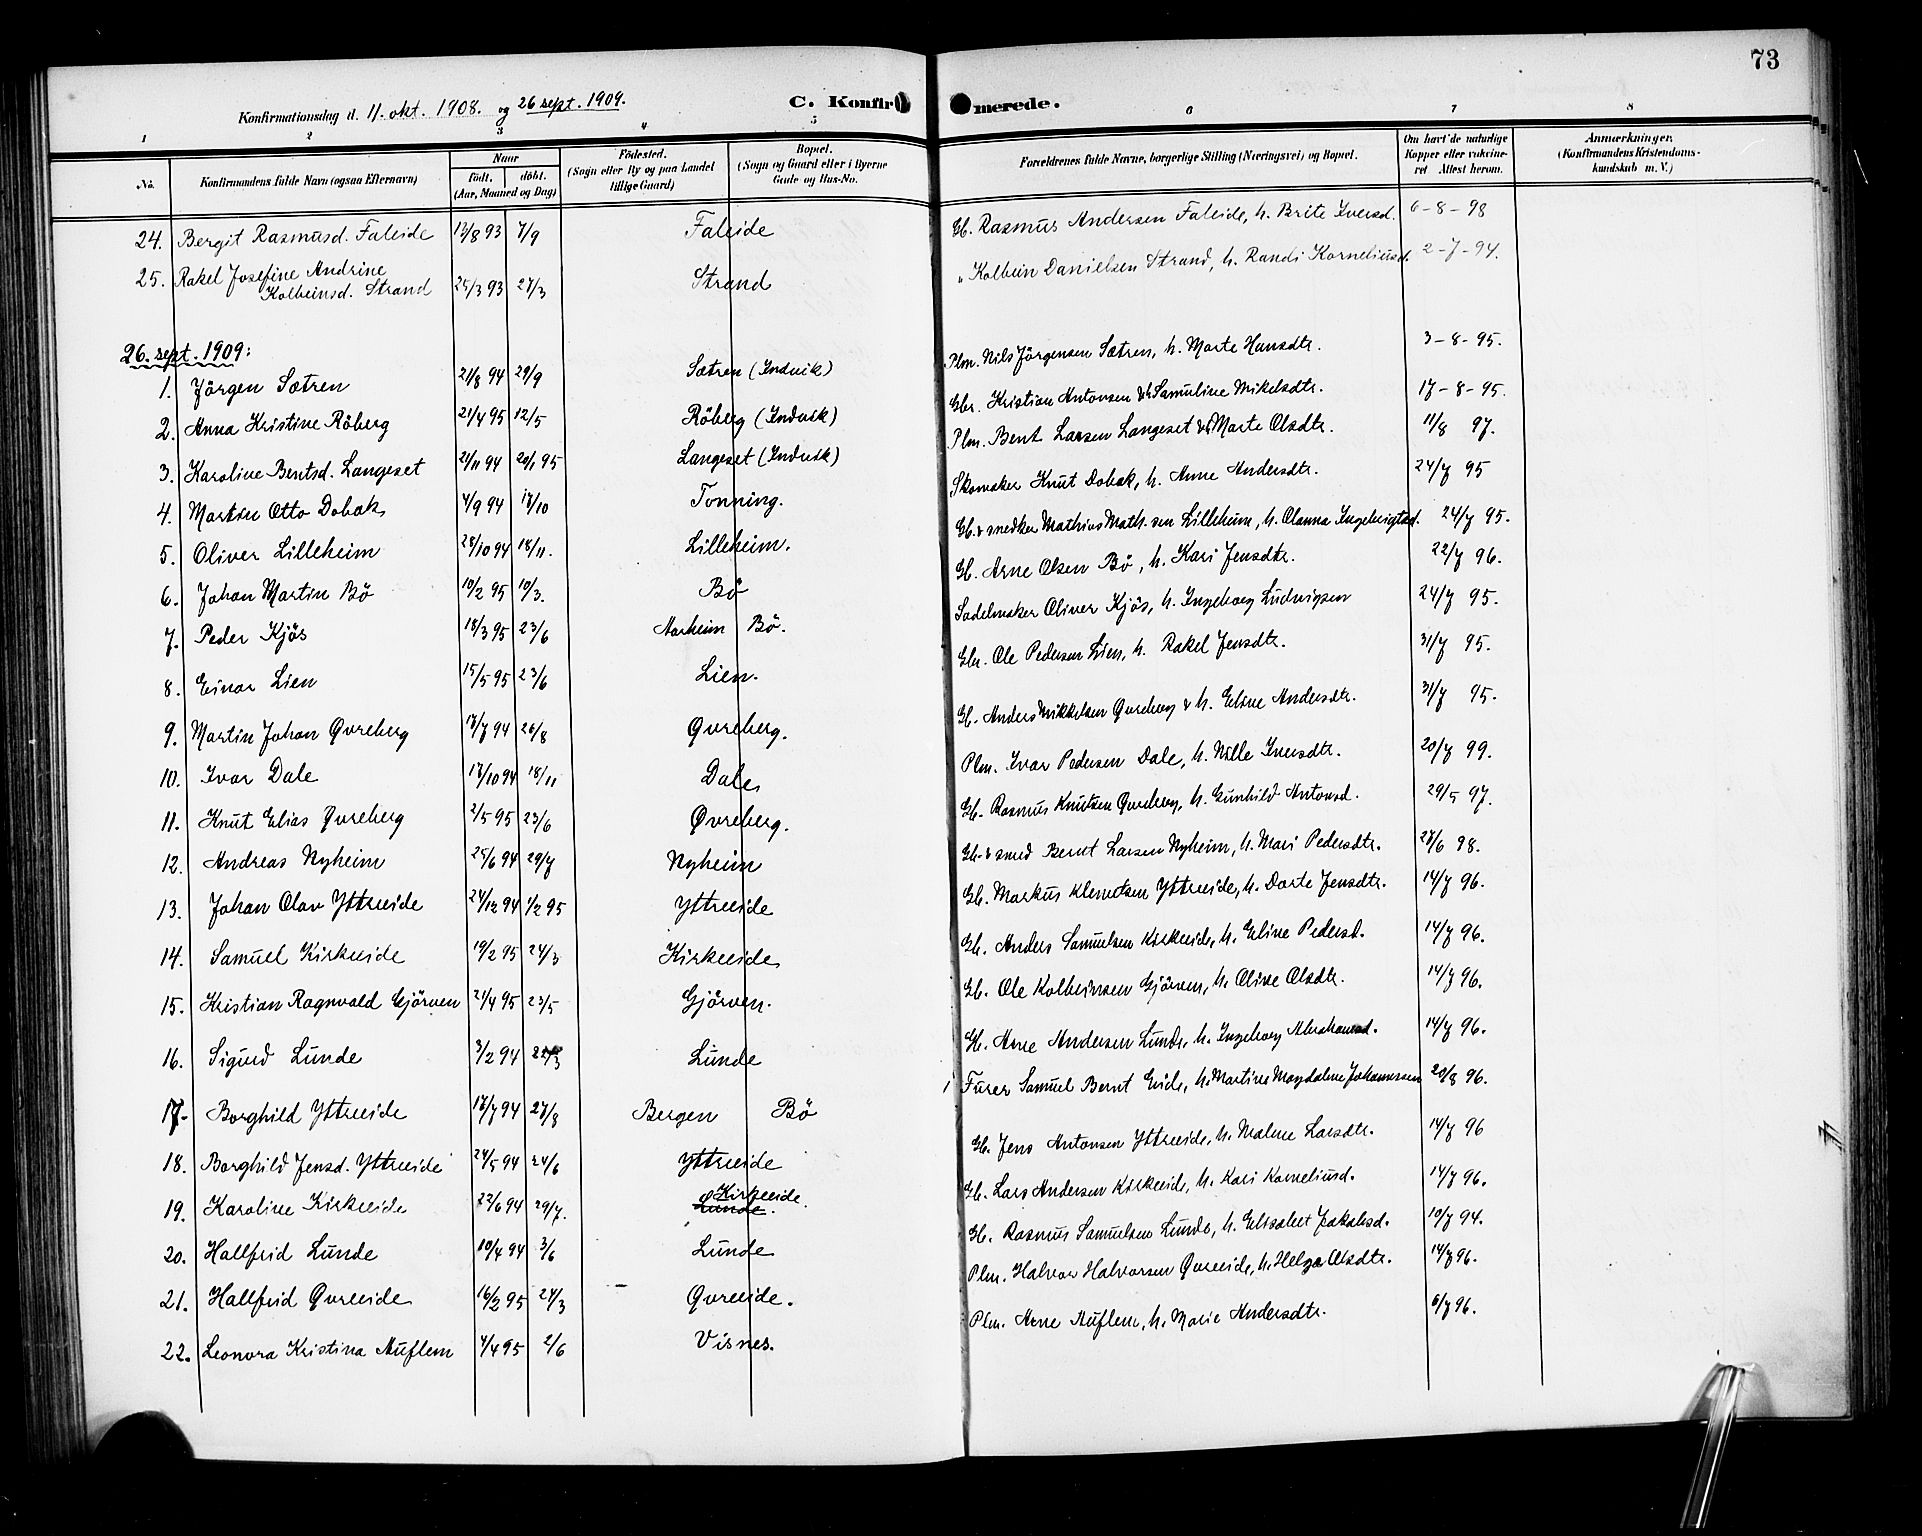 73
Konfirmationsdag d. 11. okt. 1908. og 26 sept. 1909. C. Konfirmerede.
1 2 3 4 5 6 7 8
No. Konfirmandens fulde Navn (ogsaa Efternavn) Naar födt. döbt. (Aar, Maaned og Dag) Födested. (Sogn eller By og paa Landet tillige Gaard) Bopæl. (Sogn og Gaard eller i Byerne Gade og Hus-No. Forældrenes fulde Navne, borgerlige Stilling (Næringsvei) og Bopæl. Om havt de naturlige Kopper eller vaccineret Attest herom. Anmærkninger. (Konfirmandens Kristendomskundskab m. V.)
24. Bergit Rasmusd. Faleide 13/8 93 7/9 Faleide Gb. Rasmus Andersen Faleide, h. Brite Iversd. 6-8-98
25. Rakel Josefine Andrine
Kolbeinsd. Strand 25/3 93 27/3 Strand " Kolbein Danielsen Strand, h. Randi Korneliusd. 2-7-94.
26. sept. 1909:
1. Jörgen Sætren 21/8 94 29/9 Sætren (Indvik) Plm. Nils Jörgensen Sætren, h. Marte Hansdtr. 3-8-95.
2. Anna Kristine Röberg 21/4 95 12/5 Röberg (Indvik) Gbr. Kristian Antonsen & h. Samuline Mikelsdtr. 17-8-95.
3. Karoline Bentsd. Langeset 21/11 94 20/1 95 Langeset (Indvik) Plm. Bent Larsen Langeset & h. Marte Olsdtr. 11/8 97.
4. Martin Otto Dobak 4/9 94 17/10 Tonning. Skomaker Knut Dobak, h. Anne Andersdtr. 24/7 95
5. Oliver Lilleheim 28/10 94 18/11. Lilleheim. Gb. & snedker Mathias Math.sen Lilleheim, h. Olanna Ingebrigtsd. 24/7 95.
6. Johan Martin Bö 10/2 95 10/3. Bö Gb. Arne Olsen Bö, h. Kari Jensdtr. 22/7 96.
7. Peder Kjös 18/3 95 23/6 Aarheim Bö. Sadelmaker Oliver Kjös, h. Ingeborg Ludvigsen 24/7 95.
8. Einar Lien 15/5 95 23/6 Lien. Gbr. Ole Pedersen Lien, h. Rakel Jensdtr. 31/7 95.
9. Martin Johan Qvreberg 17/7 94 26/8 Qvreberg. Gb. Anders Mikkelsen Qvreberg & h. Eline Andersdtr. 31/7 95.
10. Ivar Dale 17/10 94 18/11 Dale Plm. Ivar Pedersen Dale, h. Nille Iversdtr. 20/7 99.
11. Knut Elias Qvreberg 2/5 95 23/6 Øvreberg. Gb. Rasmus Knutsen Qvreberg, h. Gunhild Antonsd. 29/5 97.
12. Andreas Nyheim 25/6 94 29/7 Nyheim Gb. & smed Bernt Larsen Nyheim, h. Mari Pedersdtr. 27/6 98.
13. Johan Olav Yttreeide 24/12 94 1/2 95 Yttreeide Gb. Markus Klemetsen Yttreeide, h. Dorte Jensdtr. 14/7 96.
14. Samuel Kirkeeide 19/2 95 24/3 Kirkeeide Gb. Anders Samuelsen Kirkeeide, h. Eline Pedersd. 14/7 96.
15. Kristian Ragnvald Gjörven 21/4 95 23/5 Gjörven. Gb. Ole Kolbeinsen Gjörven, h. Oline Olsdtr. 14/7 96.
16. Sigurd Lunde 3/2 94 Lunde Gb. Arne Andersen Lunde, h. Ingeborg Abrahamsd. 14/7 96.
17. Borghild Yttreeide 17/7 94 27/8 Bergen Bö Furer Samuel Bernt Eide, h. Martine Magdalene Johannesen 20/8 96.
18. Borghild Jensd. Yttreeide 24/5 94 24/6 Yttreeide Gb. Jens Antonsen Yttreeide, h. Malene Larsdtr. 14/7 96
19. Karoline Kirkeeide 23/6 94 29/7. Kirkeeide. Lunde. Gb. Lars Andersen Kirkeeide, h. Kari Korneliusd. 14/7 96.
20. Hallfrid Lunde 10/4 94 3/6 Lunde Gb. Rasmus Samuelsen Lunde, h. Elisabet Jakobsd. 10/7 94.
21. Hallfrid Qvreeide 16/2 95 24/3 Qvreeide. Plm. Halvor Halvorsen Qvreeide, h. Helga Olsdtr. 14/7 96.
22. Leonora Kristina Auflem 4/4 95 2/6 Visnes. Plm. Arne Auflem, h. Marie Andersdtr. 6/7 96.